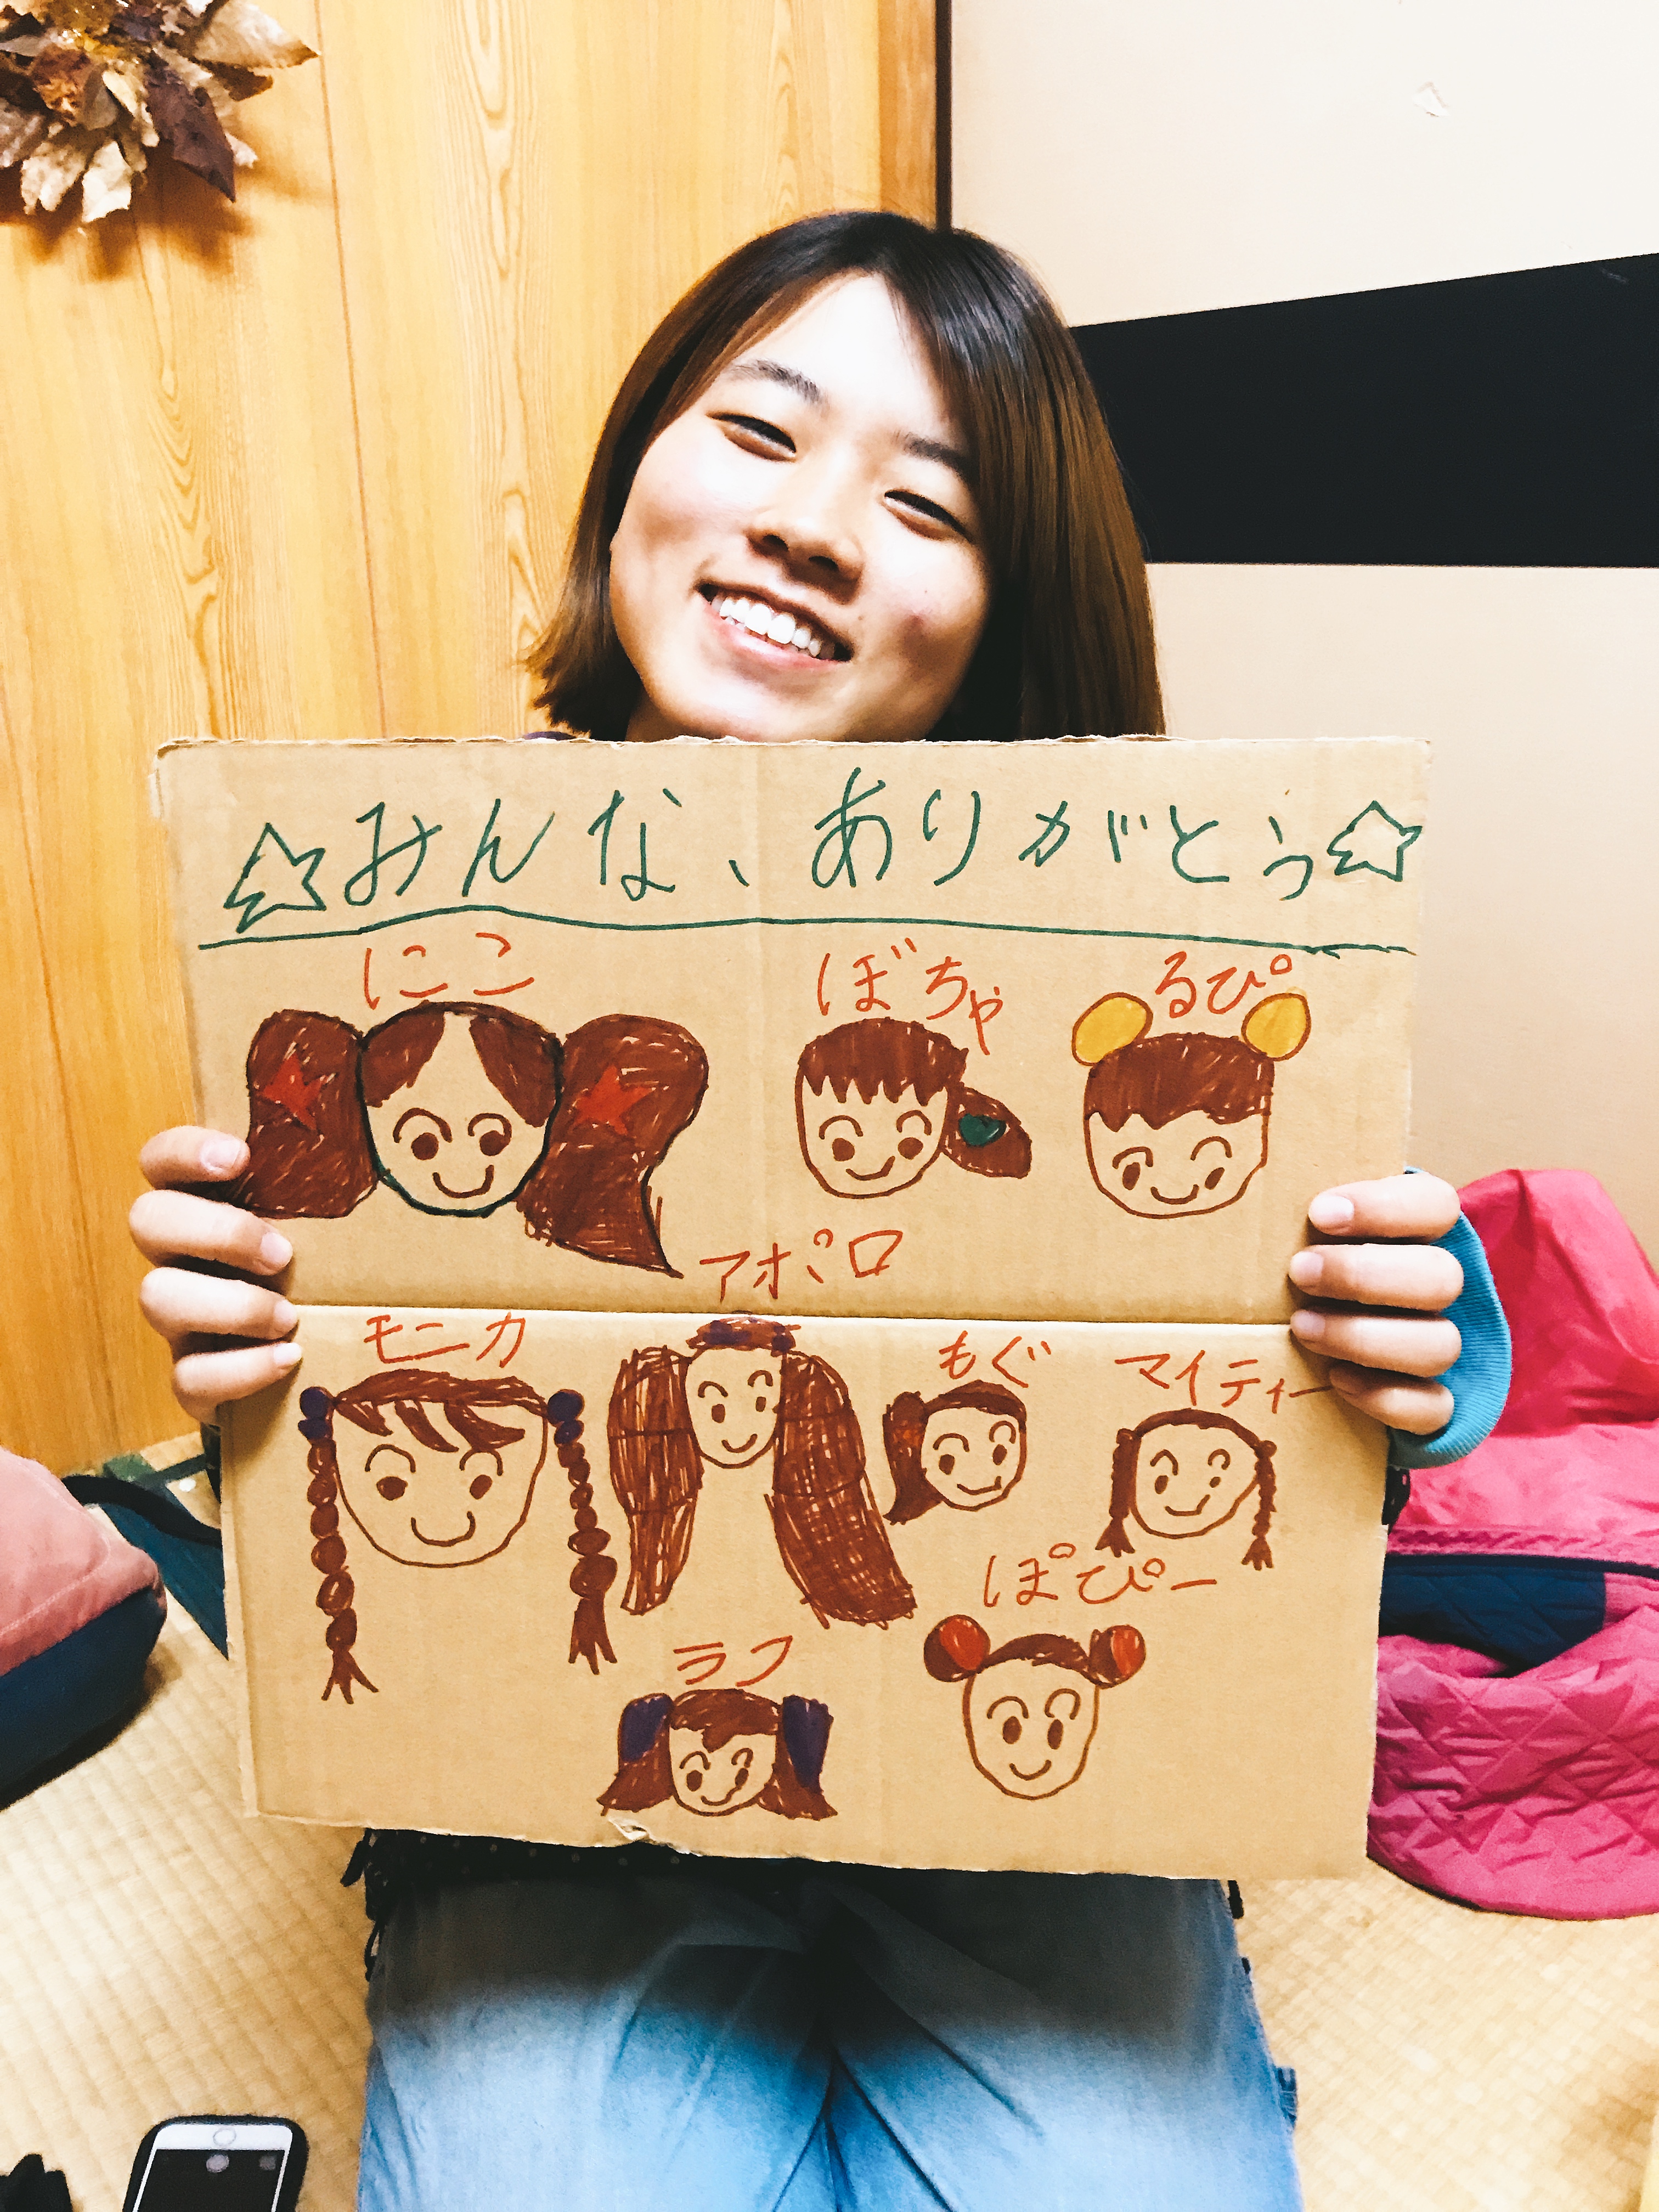 ☆みんな、ありがとう☆
にこ
ぼちゃ
るぴ
アポロ
モニカ
もぐ
マイティー
ぽぴー
ラフ